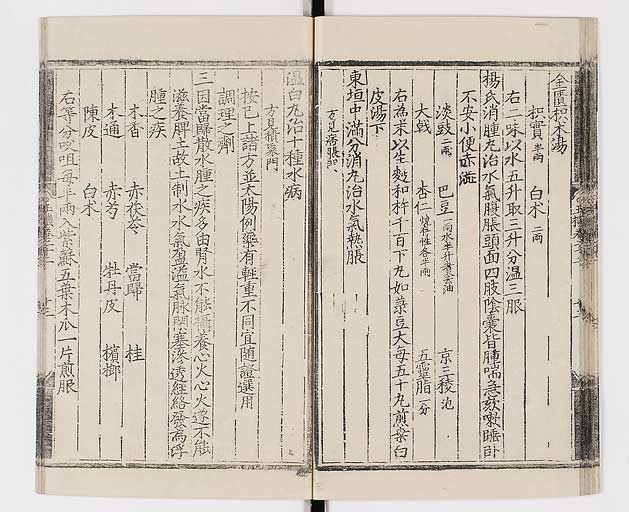 金匱枳朮湯
枳實 半兩 白朮 二兩
右二味以水五升取三升分溫三服
楊氏消腫丸治水氣腹脹頭面四肢陰囊皆腫喘急欬嗽睡卧
不安小便赤澁
淡豉 二兩 巴豆 京三稜
大戟 杏仁 五靈脂 一分
右為末以生麪和杵千百下丸如菉豆大每五十丸煎桒白
皮湯下
東垣中滿分消丸治水氣熱脹
方見
溫白丸治十種水病
方見積聚門
按已上諸方並太陽例藥有輕重不同宜隨證選用
調理之劑
三因當歸散水腫之疾多由腎水不能攝養心火心火遂不能
滋養脾土故土制水水氣盈溢氣脉閉塞滲透經絡發為浮
腫之疾
木香 赤茯苓 當歸 桂
木通 赤芍 牡丹皮 檳榔
陳皮 白朮
右等分㕮咀每半兩入紫蘇五葉木瓜一片煎服